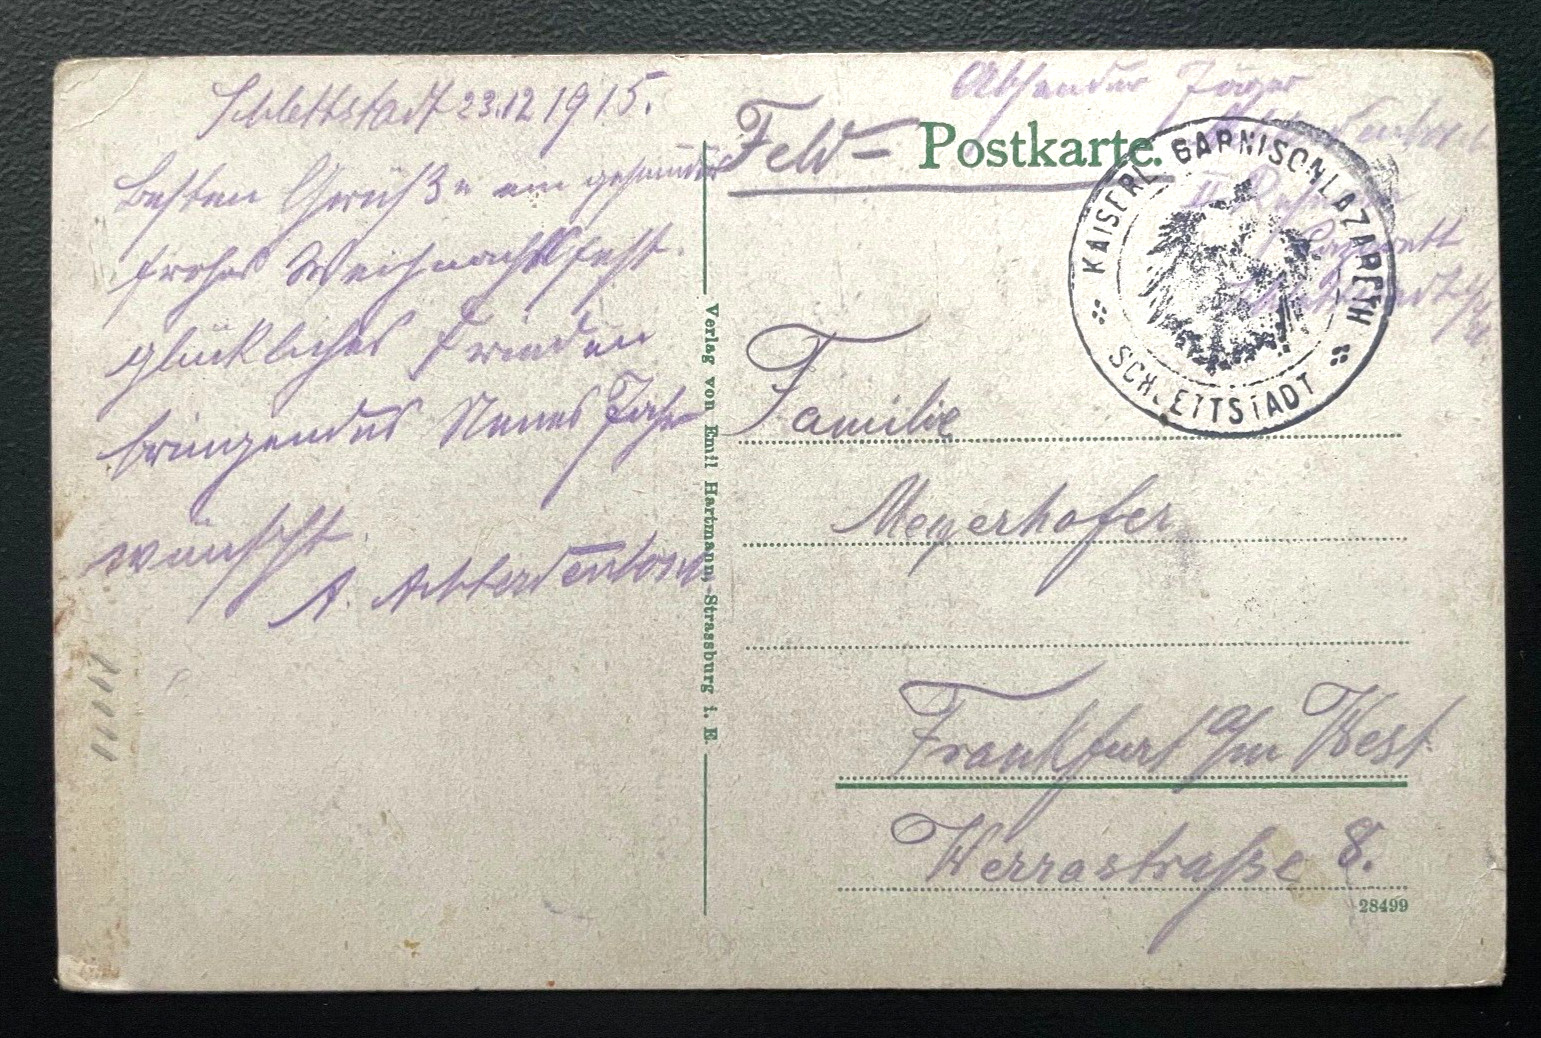 Schlettstadt 23.12 1915.
Besten Gruß u ein gesundes
frohes Weihnachtsfest
glückliches Frieden
bringendes Neues Jahr
wünscht.
A.
Verlag von Emil Hartmann, Strassburg i. E.
Absender Jäger
Lazarett
Schlettstadt
Feld-
Postkarte.
KAISERL. GARNISONLAZARETH
SCHLETTSTADT
Familie
Meyerhofer
Frankfurt a/m West
Werrastraße 8.
28499